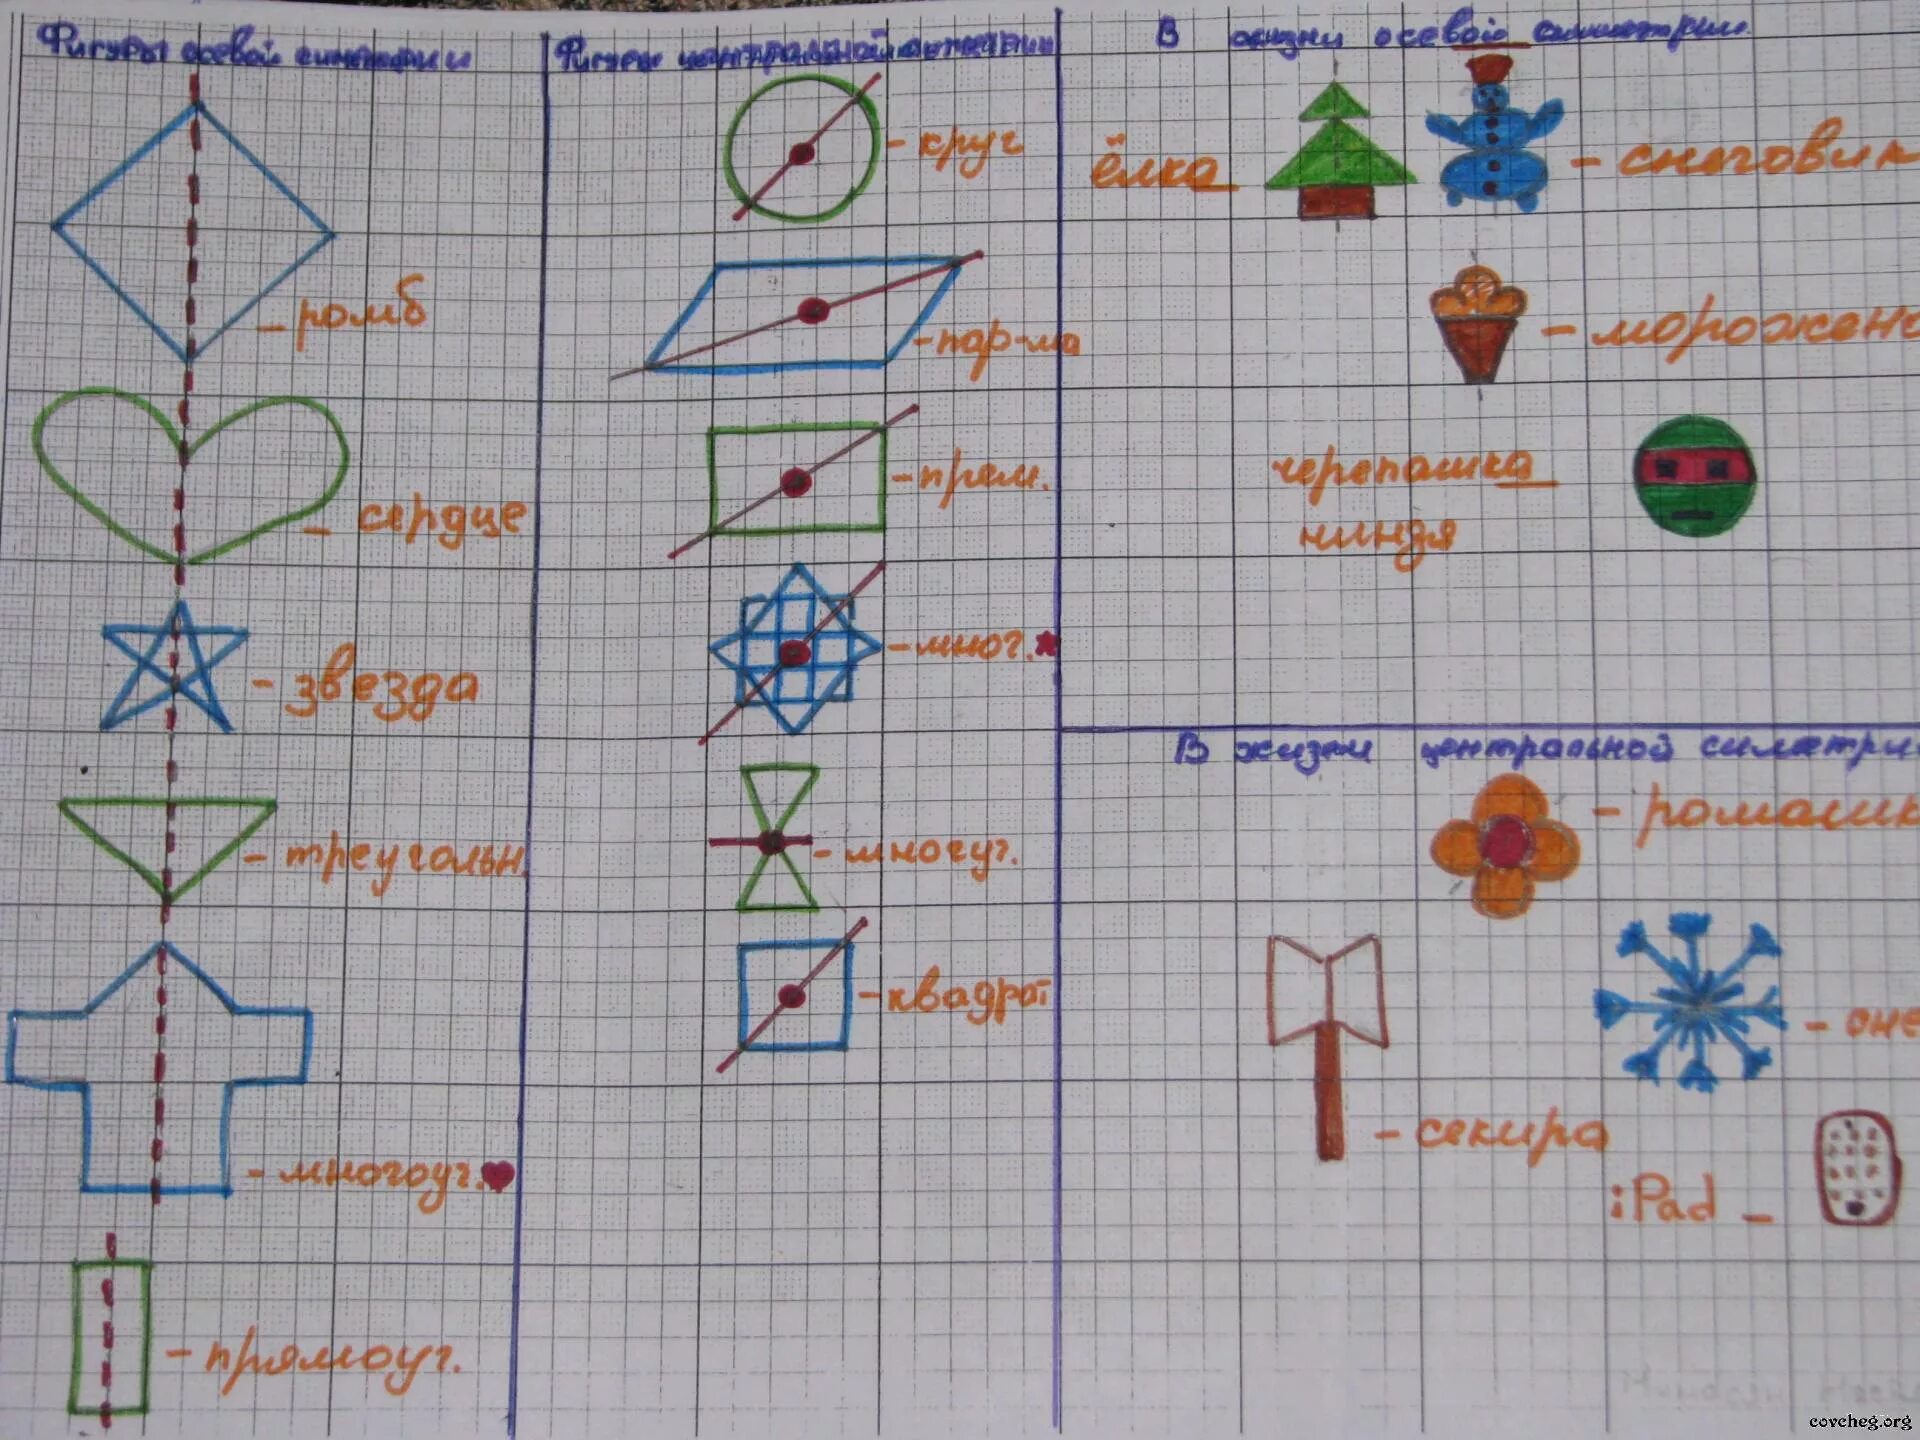 Фигуры осевой симметрии
- ромб
- сердце
- звезда
- треугольн.
- многоуг.
- прямоуг.
Фигуры центральной
- круг
- пар-ма
- прям.
- мног.
- многуг.
- квадрат
В жизни осевой симметрии.
ёлка
- снеговик
- морожено
черепашка
ниндзя
В жизни центральной симетри
- ромашк
- сне
- секира
iPad -
covcheg.org